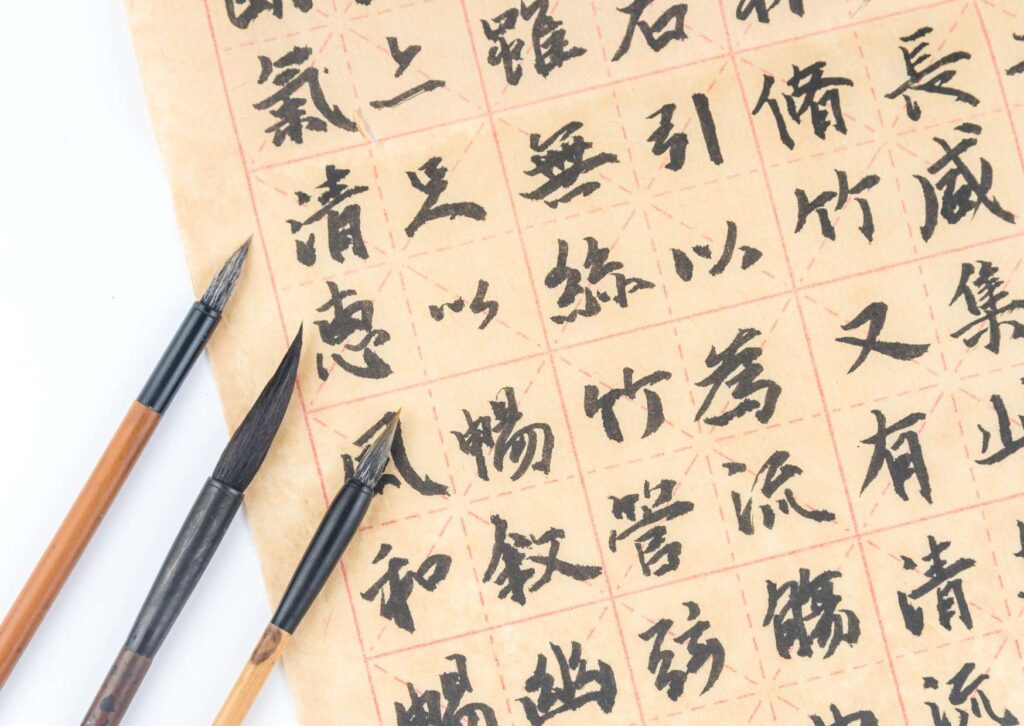 長咸集
脩竹又有清流
右引以為流觴
雖無絲竹管弦
足以暢叙幽
氣清惠風和暢